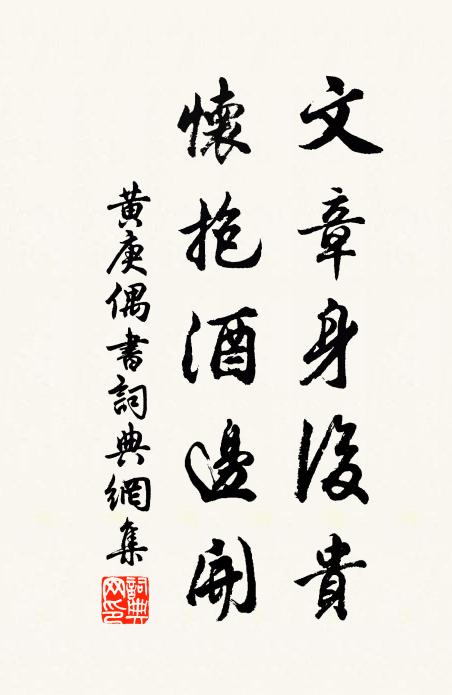 文章身後貴
懷抱酒邊開
黄庚偶書詞典網集
詞典网印